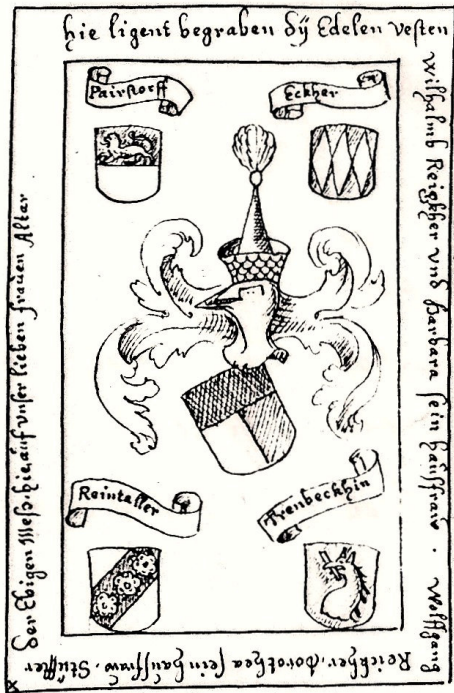 hie ligent begraben dÿ Edelen vesten
wilhalmb Reigkher vnd barbara sein haüsfraw . wolffgang
Reickher, dorothea sein haüsfraw. Stüffter
der Ebigen Meß. hie auf vnser lieben fraüen Altar
Pairstorff
Eckher
Reintaller
Trenbeckhin